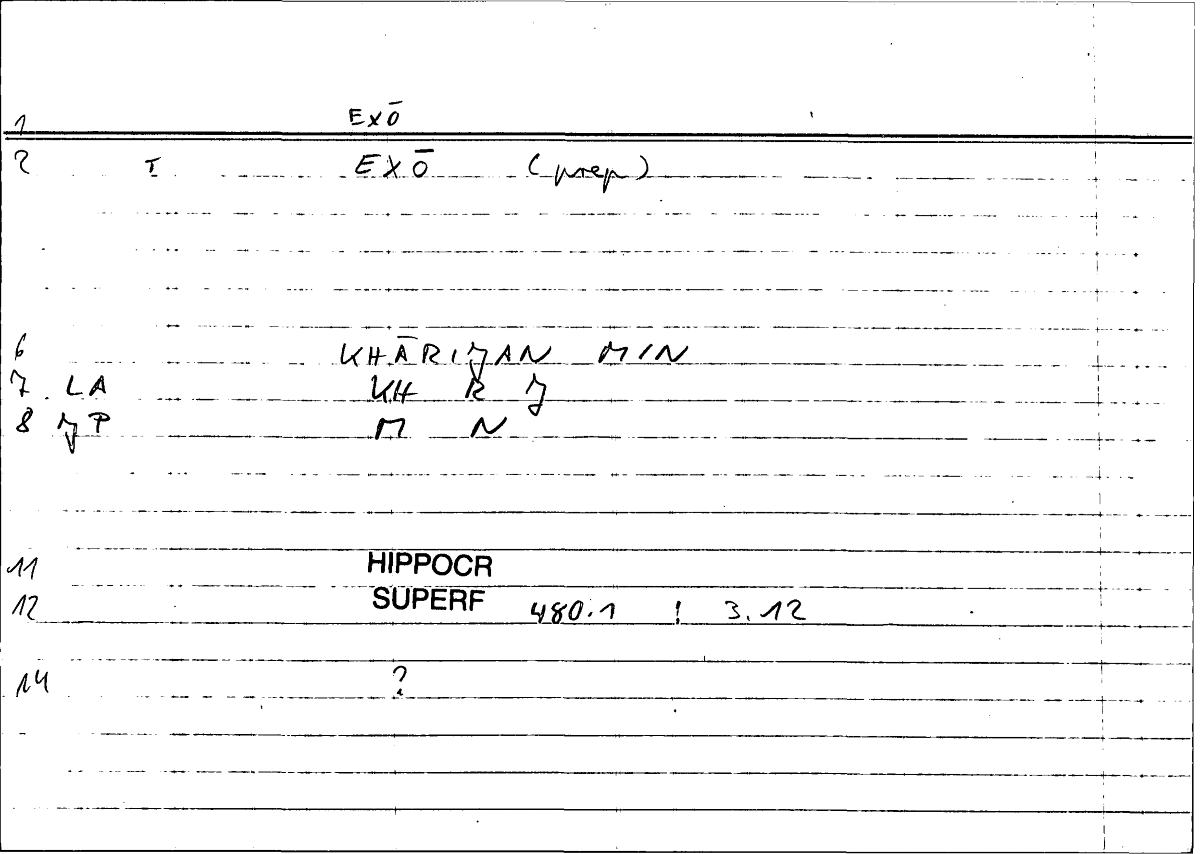 1 EXŌ
2 I EXŌ (prep)
6 KHĀRIJAN MIN
7 LA KH R J
8 JP M N
11 HIPPOCR
12 SUPERF 480.1 ! 3.12
14 ?